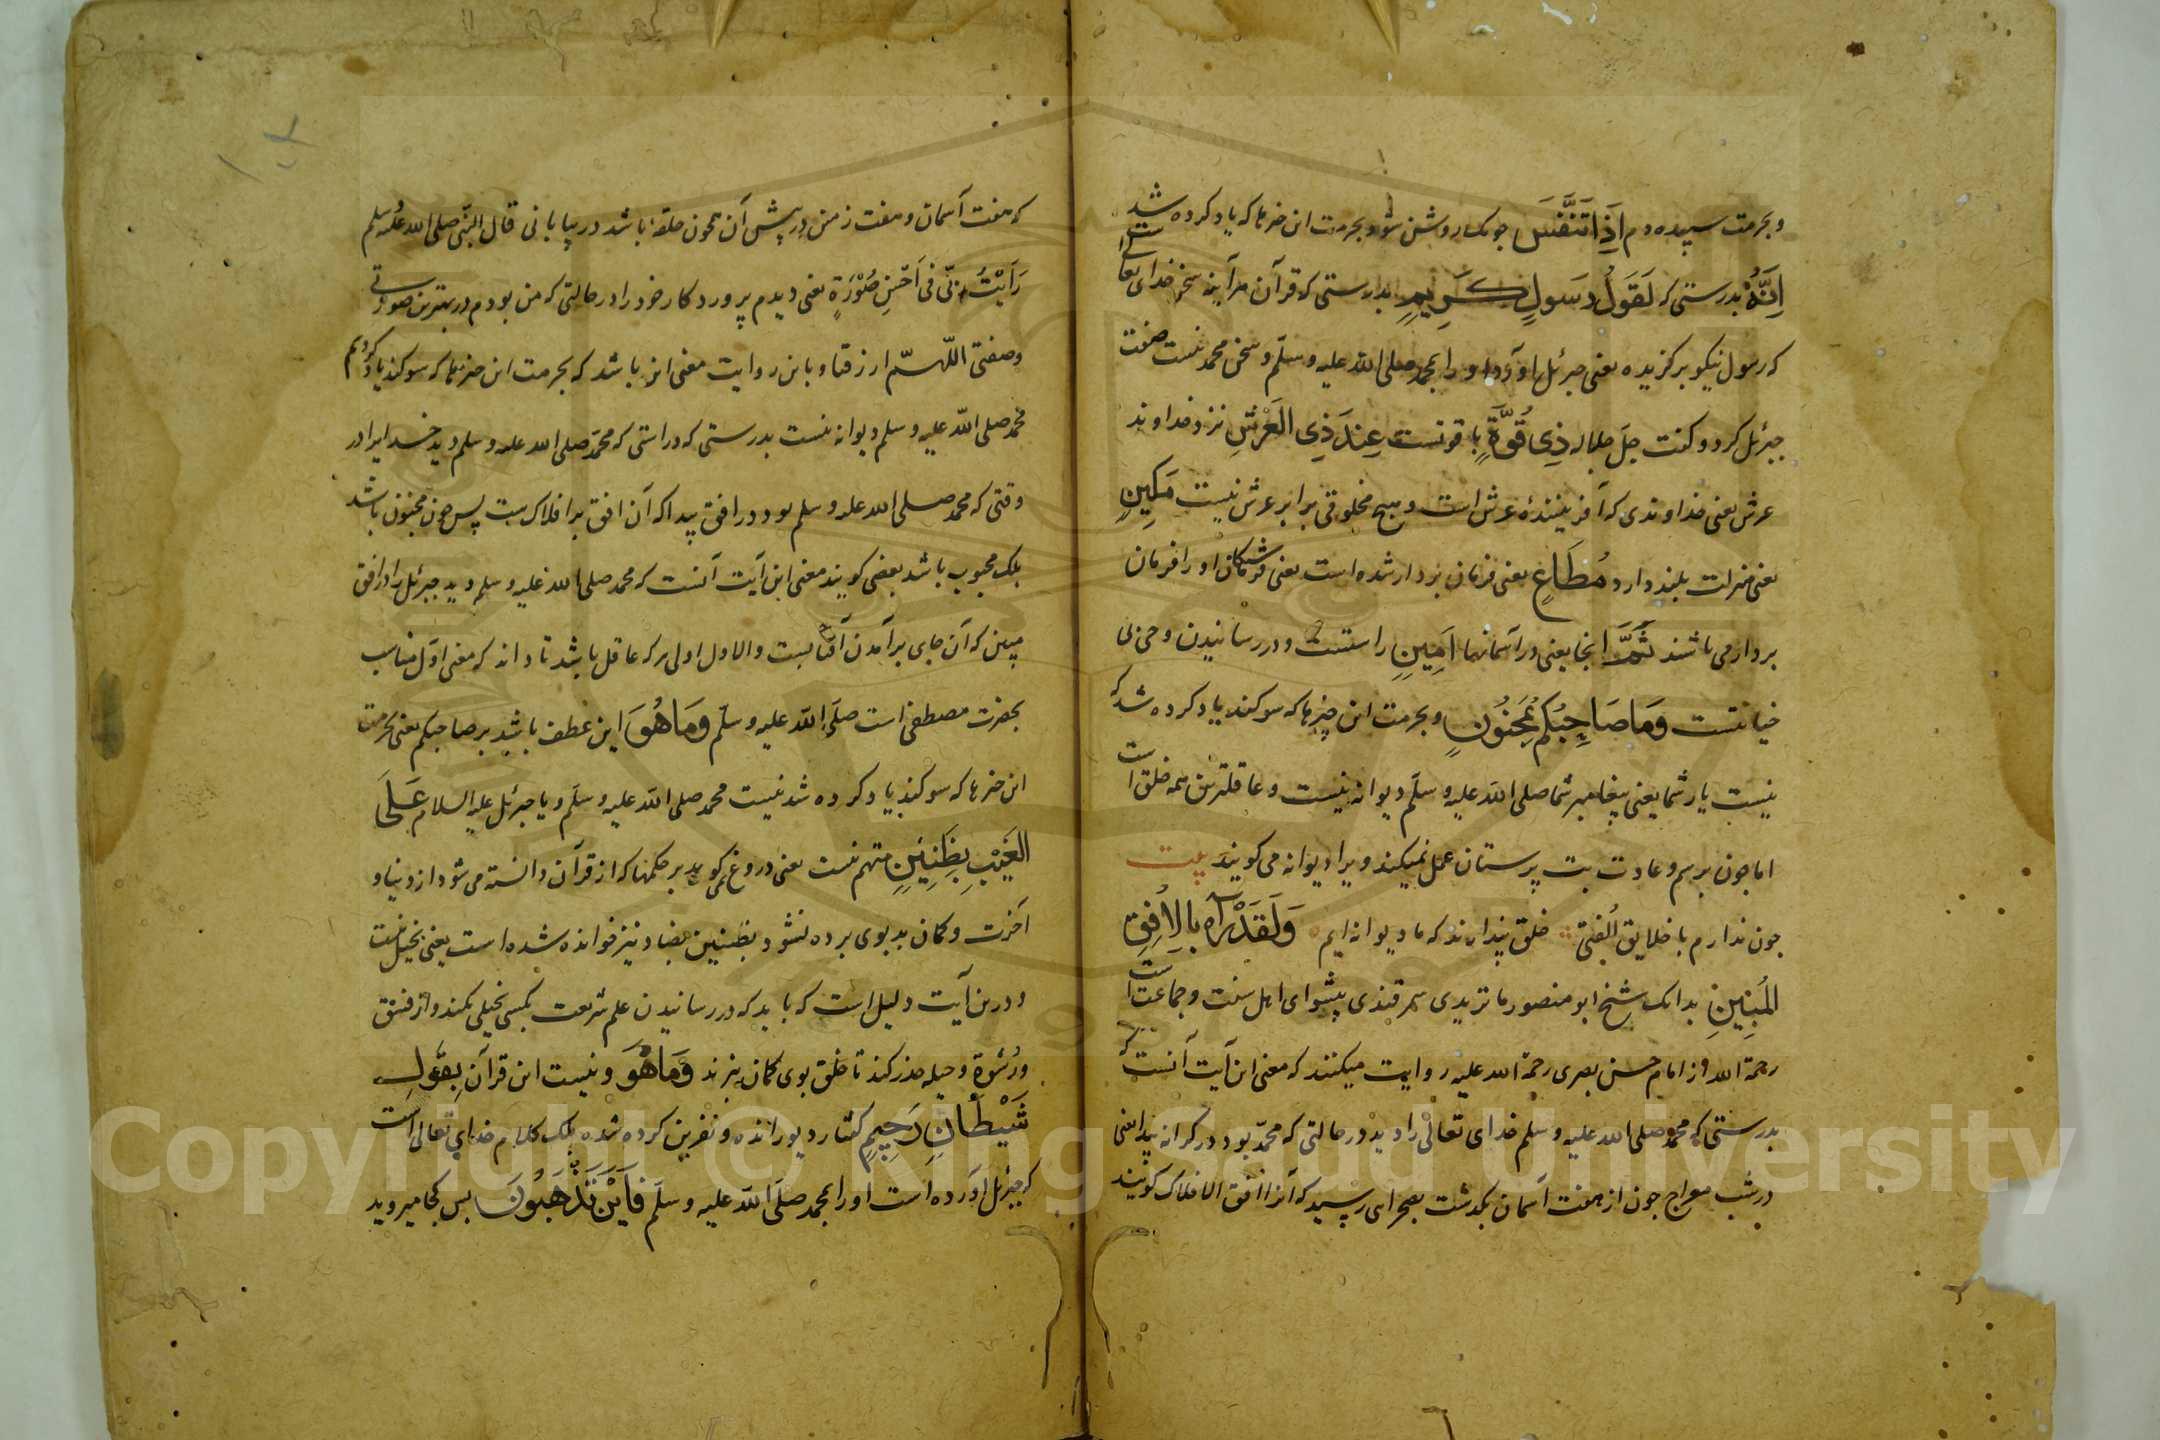 و بحرمت سپیده دم اِذَا تَنَفَّسَ چونک روشن شود بحرمت این چیزها که یاد کرده شد
اِنَّهُ بدرستی که لَقَولُ رَسولٍ كَرِيمٍ بدرستی که قرآن هرآینه سخن خدای تعالی است
که رسول نیکو برگزیده یعنی جبرئیل آورد او را بمحمد صلی الله علیه و سلّم و سخن محمد نیست صفت
جبرئیل کرد و گفت جلّ جلاله ذِی قُوَّةٍ با قوتست عِندَ ذِی العَرْشِ نزد خداوند
عرش یعنی خداوندی که آفرینندهٔ عرش است و هیچ مخلوقی برابر عرش نیست مَكِينٍ
یعنی منزلت بلند دارد مُطَاعٍ یعنی فرمان بردار شده است یعنی فرشتگان او را فرمان
بردار می باشند ثَمَّ آنجا یعنی در آسمانها اَمِينٍ راستست و در رسانیدن وحی بی
خیانتست وَمَا صَاحِبُكُم بِمَجنُونٍ و بحرمت این چیزها که سوکند یاد کرده شد که
نیست یار شما یعنی پیغامبر شما صلی الله علیه و سلّم دیوانه نیست و عاقلترین همه خلق است
اما چون برسم و عادت بت پرستان عمل نمیکند ویرا دیوانه می کویند بیت
چون ندارم با خلایق اُلفتی خلق پندارند که ما دیوانه ایم وَلَقَدْ رَآهُ بِالاُفُقِ
المُبِينِ بدانک شیخ ابو منصور ماتریدی سمرقندی پیشوای اهل سنت و جماعت است
رحمة الله از امام حسن بصری رحمة الله علیه روایت میکنند که معنی این آیت آنست که
بدرستی که محمد صلی الله علیه و سلم خدای تعالی را دید در حالتی که محمّد بود در کرانه پیدا یعنی
در شب معراج چون از هفت آسمان بگذشت بصحرای رسید که آنرا افق الافلاک کویند
که هفت آسمان و هفت زمین در پیش آن همچون حلقهٔ باشد در بیابانی قال النّبی صلی الله علیه و سلم
رَاَيْتُ رَبّی فی اَحْسَنِ صُوْرَةٍ یعنی دیدم پروردکار خود را در حالتی که من بودم در بهترین صورتی
و صفتی اللّهمّ ارزقنا و باین روایت معنی این باشد که بحرمت این چیزها که سوکند یاد کردیم
محمد صلی الله علیه و سلم دیوانه نیست بدرستی که و راستی که محمّد صلی الله علیه و سلم دید خدایرا در
وقتی که محمد صلی الله علیه و سلم بود در افق پیدا که آن افق بر افلاکست پس چون مجنون باشد
بلک محبوب باشد بعضی کویند معنی این آیت آنست که محمد صلی الله علیه و سلم دید جبرئیل را در افق
مبین که آن جای برآمدن آفتابست والاول اولی هرکه عاقل باشد تا داند که معنی اوّل مناسب
بحضرت مصطفی است صلی الله علیه و سلّم وَمَا هُوَ این عطف باشد بر صاحبکم یعنی بحرمت
این چیزها که سوکند یاد کرده شد نیست محمد صلی الله علیه و سلّم و یا جبرئیل علیه السلام عَلَى
الغَيْبِ بِظَنِينٍ متهم نیست یعنی دروغ نمی کوید بر حکمها که از قرآن دانسته می شود از دنیا و
آخرت و کمان بد بوی برده نشود بظنین بضاد نیز خوانده شده است یعنی بخیل نیست
و درین آیت دلیل است که باید که در رسانیدن علم شریعت بکسی بخیلی نکند و از فسق
و رُشْوَة و حیله حذر کند تا خلق بوی کمان نبرند وَمَا هُوَ و نیست این قرآن بِقَولِ
شَيْطَانٍ رَجِيمٍ کفتار دیو رانده و نفرین کرده شده بلک کلام خدای تعالی است
که جبرئیل آورده است او را بمحمد صلی الله علیه و سلّم فَاَيْنَ تَذْهَبُونَ پس کجا میروید
Copyright © King Saud University